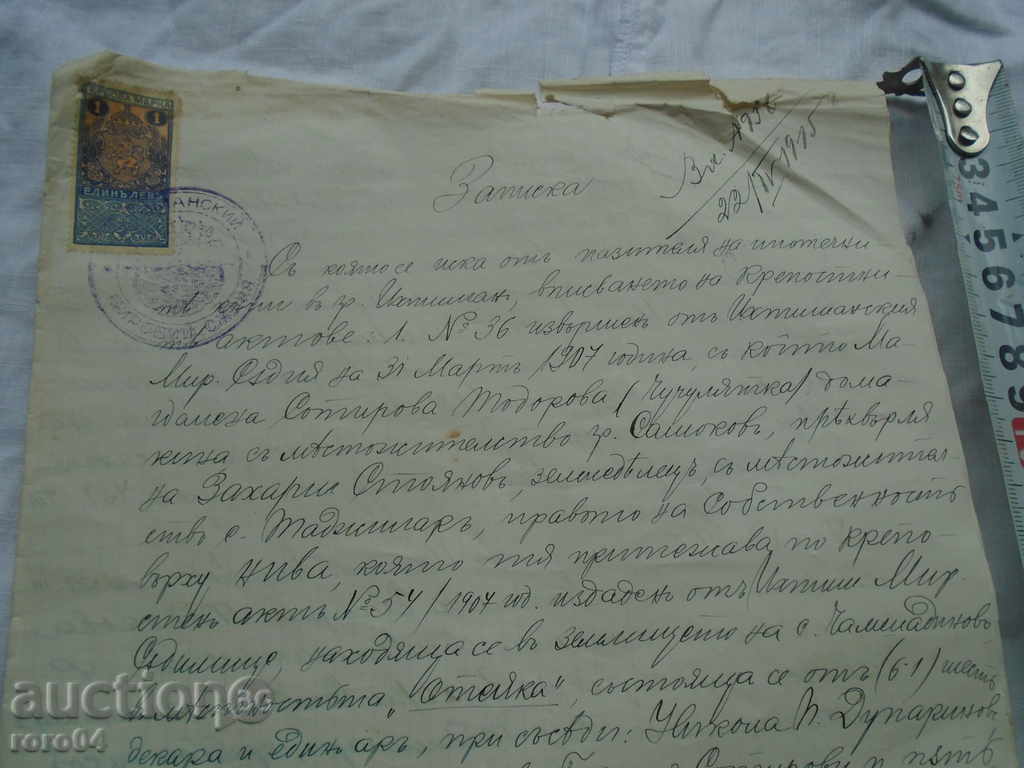 1 1
ЕДИНЪ ЛЕВЪ
Вх. №
22/IV 1915
Записка
Съ която се иска отъ пазителя на ипотечни
тѣ книги въ гр. Ихтиманъ, вписването на крепостни-
актове: 1. № 36 извършенъ отъ Ихтиманския
Мир. Съдия на 31 Мартъ 1907 година, съ който Ма-
далена Сотирова Тодорова (Чучулятка) дома-
киня съ мѣстожителство гр. Самоковъ, прѣхвърля
на Захарий Стояновъ, земледѣлецъ, съ мѣстожител-
ство с. Таджиларъ, правото на собственность
върху нива, която тя притежава по крепо-
стенъ актъ № 54/1907 год. издаденъ отъ Ихтим. Мир.
Сѫдилище, находяща се въ землището на с.
въ мѣстностьта "Отейка", състояща се отъ (6·1) шесть
декара и единъ аръ, при съсѣди: Никола П. Дупаринов
Сотирови и пѫть
auction
roro04
3 4 5 6 7 8 9